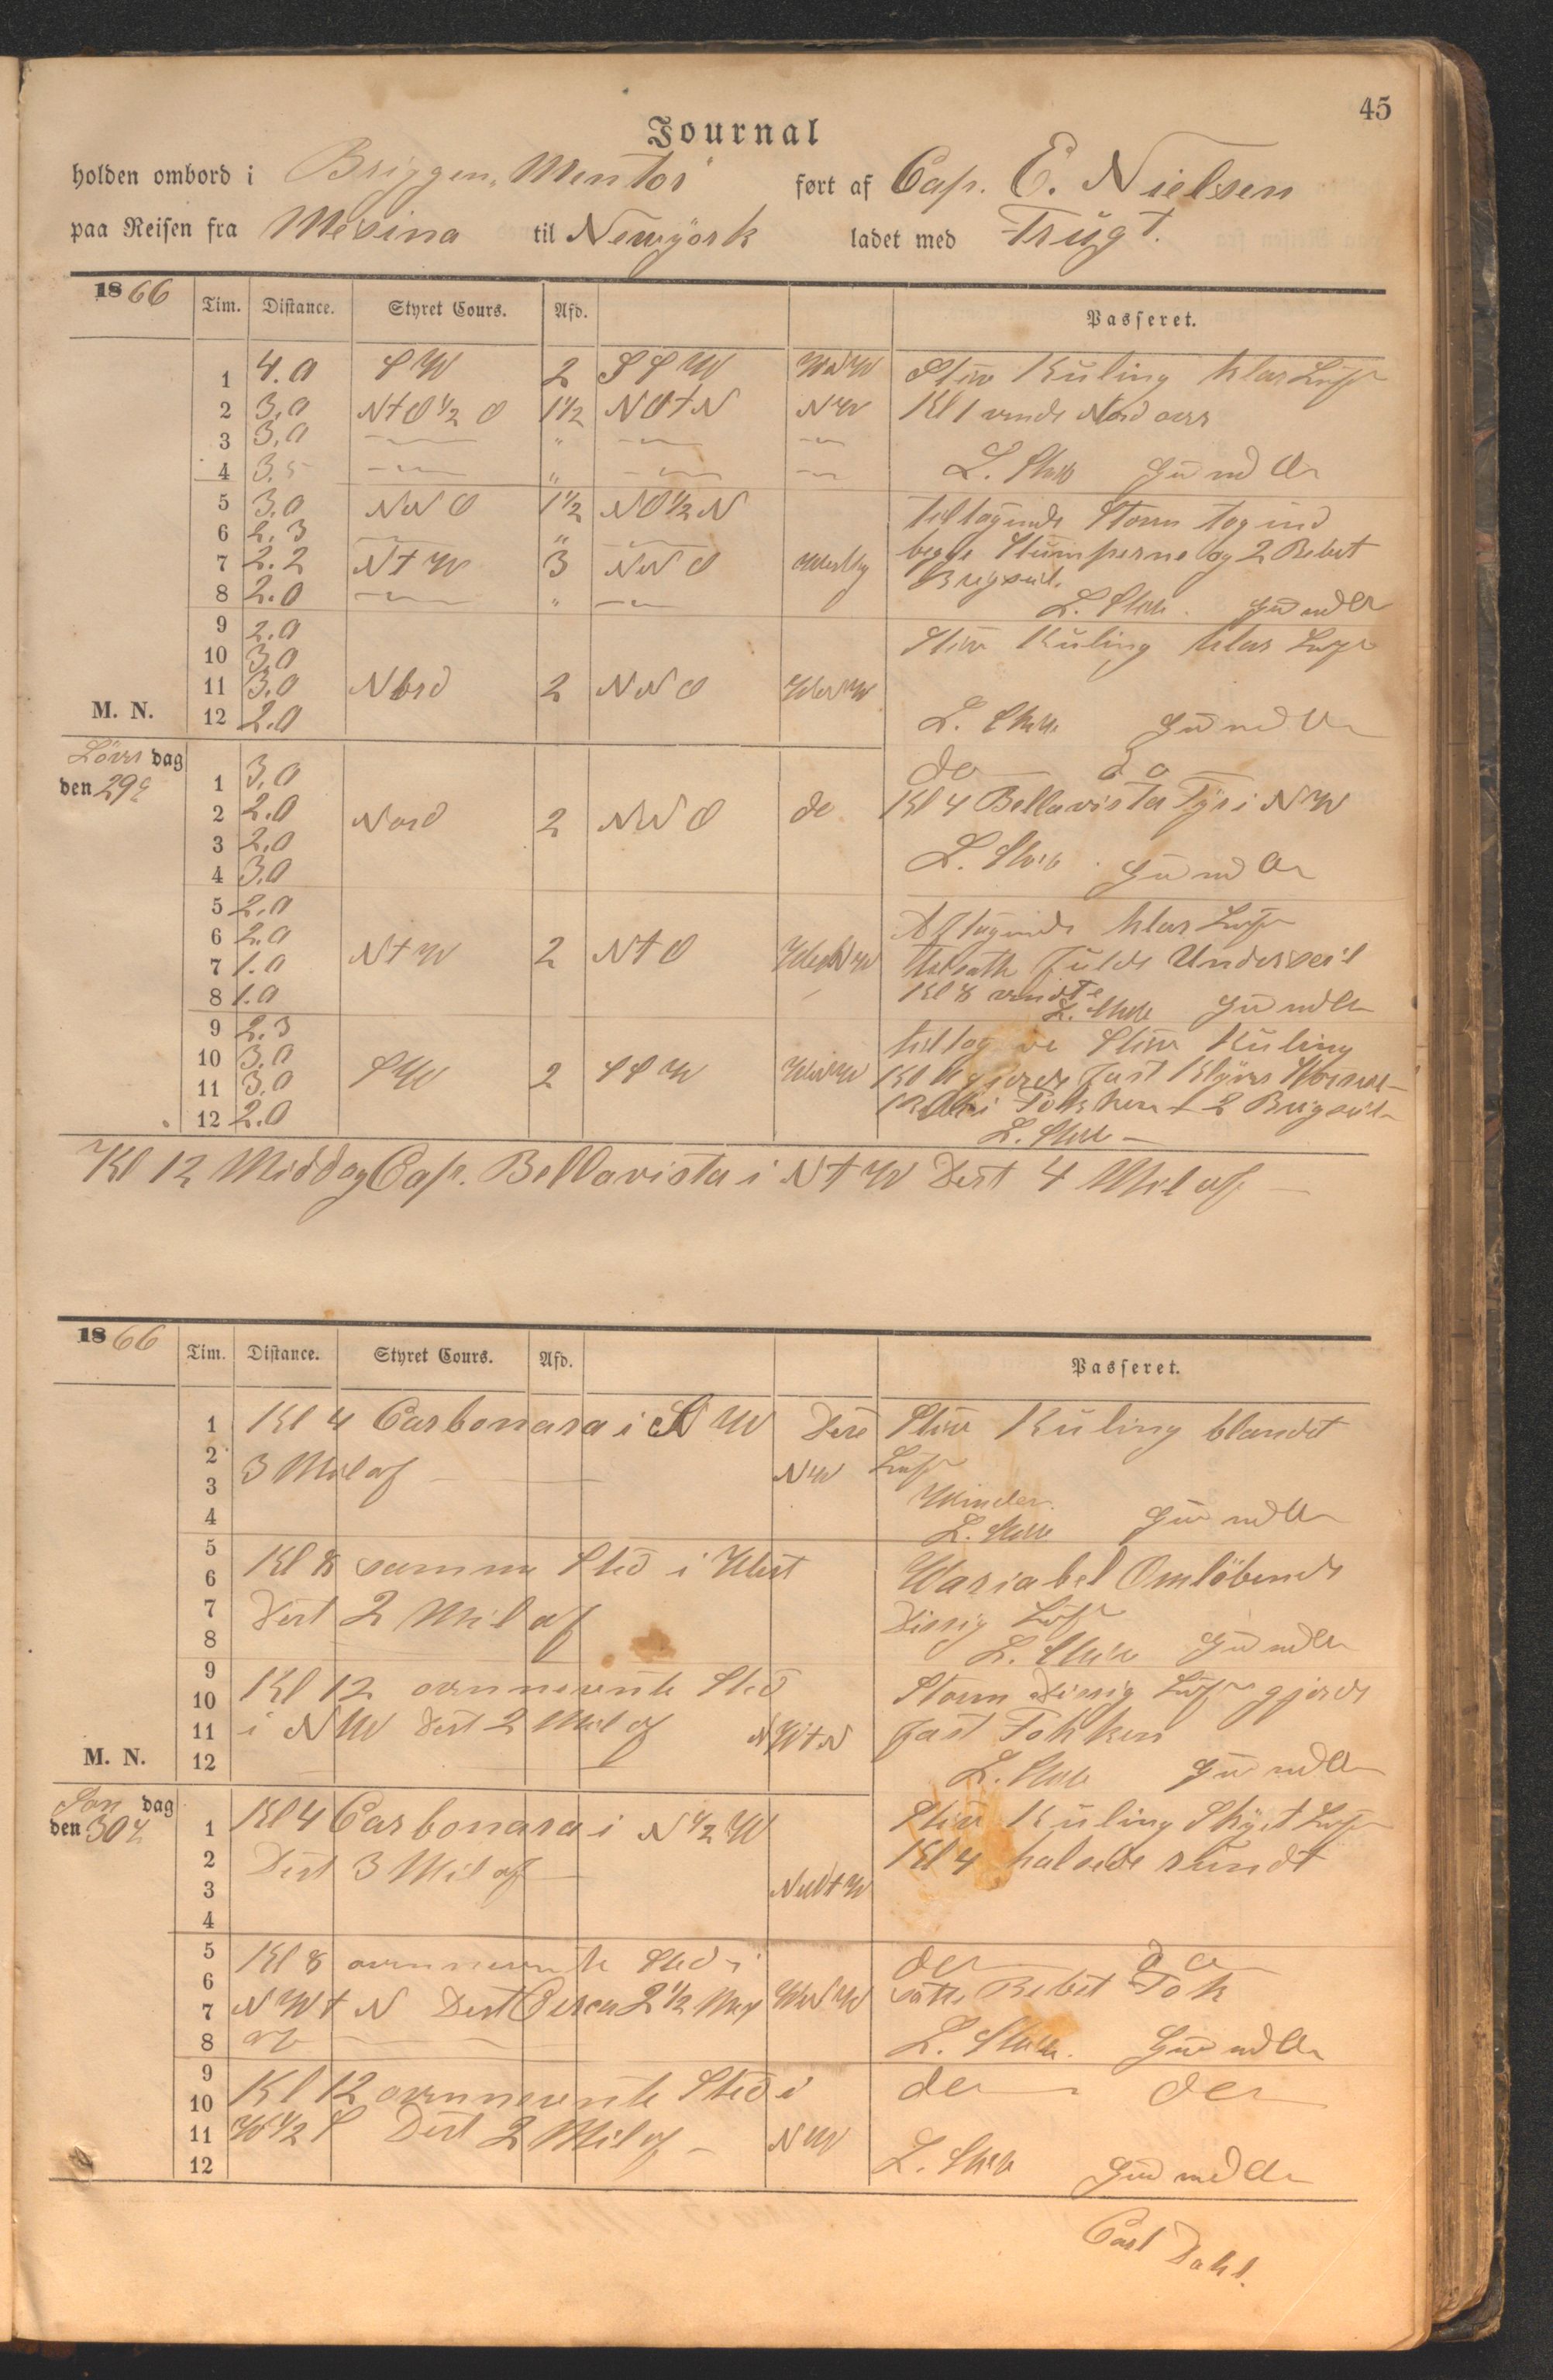 45
Journal
holden ombord i Briggen „Mentor" ført af Cap. E. Nielsen
paa Reisen fra Mesina til Newyork ladet med Frugt.
1866 Tim. Distance. Styret Cours. Afd. Passeret.
1 4.0 SW 2 SSW WNW Stiv Kuling klar Luft
2 3,0 NtO½O 1½ NOtN NW Kl 1 vende Nord over
3 3,0 — " — —
4 3.5 — " — — L. Gud med Os
5 3.0 NNO 1½ NO½N tiltagende Storm tog ind
6 2.3 — " — begge Stumperne og 2 Rebet
7 2.2 NtW 3 NNO Vestlig Brigseil.
8 2.0 — " — L. Gud med Os
9 2.0 Stiv Kuling klar Luft
10 3,0
11 3.0 Nord 2 NNO WNW
M. N. 12 2.0 L. Gud med Os
Löver dag do do
den 29de 1 3,0 Kl 4 Bellavista Fyr i NW
2 2.0 Nord 2 NNO do
3 2,0 L.
4 3.0 Gud med Os
5 2,0 Aftagende klar Luft
6 2.0 NtW 2 NtO
7 1.0 tilsatte fulde Underseil
8 1.0 Kl 8 vendte L. Gud med Os
9 2.3 tiltog ve Stiv Kuling
10 3,0 SW 2 SSW WNW
11 3,0 gjorde fast Klyver
12 2.0 Fokken + 2 Brigseil
L.
Kl 12 Middag Cap. Bellavista i NtW Dist 4 Mil af —
1866 Tim. Distance. Styret Cours. Afd. Passeret.
1 Kl 4 Carbonara i NW Dist Stiv Kuling blandet
2 3 Mil af — NW Luft
3
4 L. Gud med Os
5 Kl 8 samme Sted i West Wariabel Omlöbende
6 Dist 2 Mil af Diesig Luft
7
8 L. Gud med Os
9 Kl 12 ovennevnte Sted Storm Diesig Luft gjorde
10 i NW Dist 2 Mil af NWtN fast Fokken
11
M. N. 12 L. Gud med Os
Søn dag
den 30te 1 Kl 4 Carbonara i N½W Stiv Kuling Skyet Luft
2 Dist 3 Mil af — Kl 4 halsede rundt
3
4
5 Kl 8 ovennevnte Sted i do do
6 NWtN Dist Circa 2½ Mil WNW satte Rebet Fok
7
8 af — L. Gud med Os
9 Kl 12 ovennevnte Sted i do do
10 W½S Dist 2 Mil af — NW
11
12 L. Gud med Os
Carl Dahl.